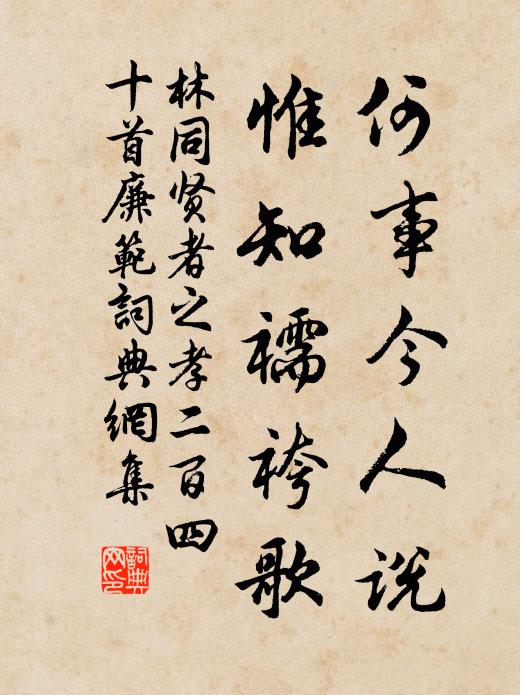 何事今人说
惟知襦袴歌
林同贤者之孝二百四
十首廉範詞典網集
詞典
网印